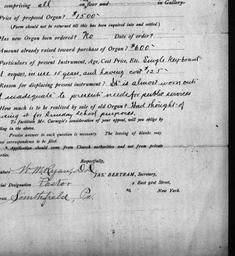 comprising all on floor and in Gallery.
Price of proposed Organ? $1500
(Form should not be returned till this has been required late and settled.)
Has new Organ been ordered? No Date of order?
Amount already raised toward purchase of Organ? $600
Particulars of present Instrument, Age, Cost Price, Etc. Single Keyboard
organ, in use 15 years, and having cost $125
Reason for displacing present instrument? It is almost worn out
inadequate to present needs for public services
How much is to be realized by sale of old Organ? Had thought of
using it for Sunday school purposes.
To facilitate Mr. Carnegie's consideration of your appeal, will you oblige by
filling in the above.
Precise answer to each question is necessary. The leaving of blanks may
Application should come from Church authorities and not from private
Respectfully,
JAS. BERTRAM, Secretary,
Official Designation Pastor
2 East 91st Street,
New York.
Smithfield, Pa.